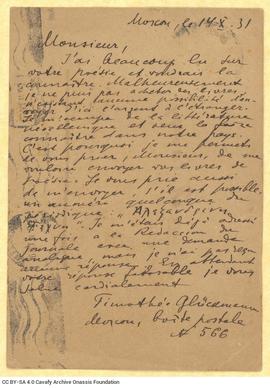 Moscou, le 14.X.31
Monsieur,
J'ai beaucoup lu sur
votre poésie et voudrais la
connaître. Malheureusement
je ne puis pas acheter les livres
n'ayant aucune possibilité d'en-
voyer d'ici l'argent à l'étranger.
Je m'occupe de la littérature
néohellénique et veux la faire
connaître dans notre pays.
C'est pourquoi je me permets
de vous prier, Monsieur, de me
vouloir envoyer vos livres de
poésie. Je vous prie aussi
de m'envoyer, s'il est possible
un numéro quelconque du
périodique "Αλεξανδρινη
Τεχνη". Je m'étais déjà adressé
une fois à la Rédaction du
Journal avec une demande
analogue mais je n'ai pas reçu
aucune réponse. En attendant
votre réponse favorable je vous
salue cordialement
Timothée Glückmann
Moscou, boîte postale
N 566
CC BY-SA 4.0 Cavafy Archive Onassis Foundation